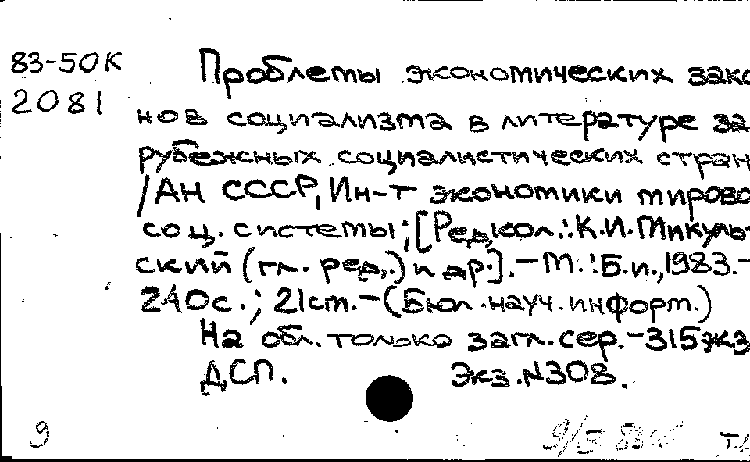 83-50К
2081
Проблемы экономических зако
нов социализма в литературе за
рубежных социалистических стран
/АН СССР, Ин-т экономики мирово
соц. системы; [Редкол.: К.И. Микуль
ский (гл. ред.) и др.]. - М.: Б.и., 1983. -
240с.; 21см. - (Бюл. науч. информ.)
На обл. только загл. сер. - 315экз
ДСП. Экз. №308.
9